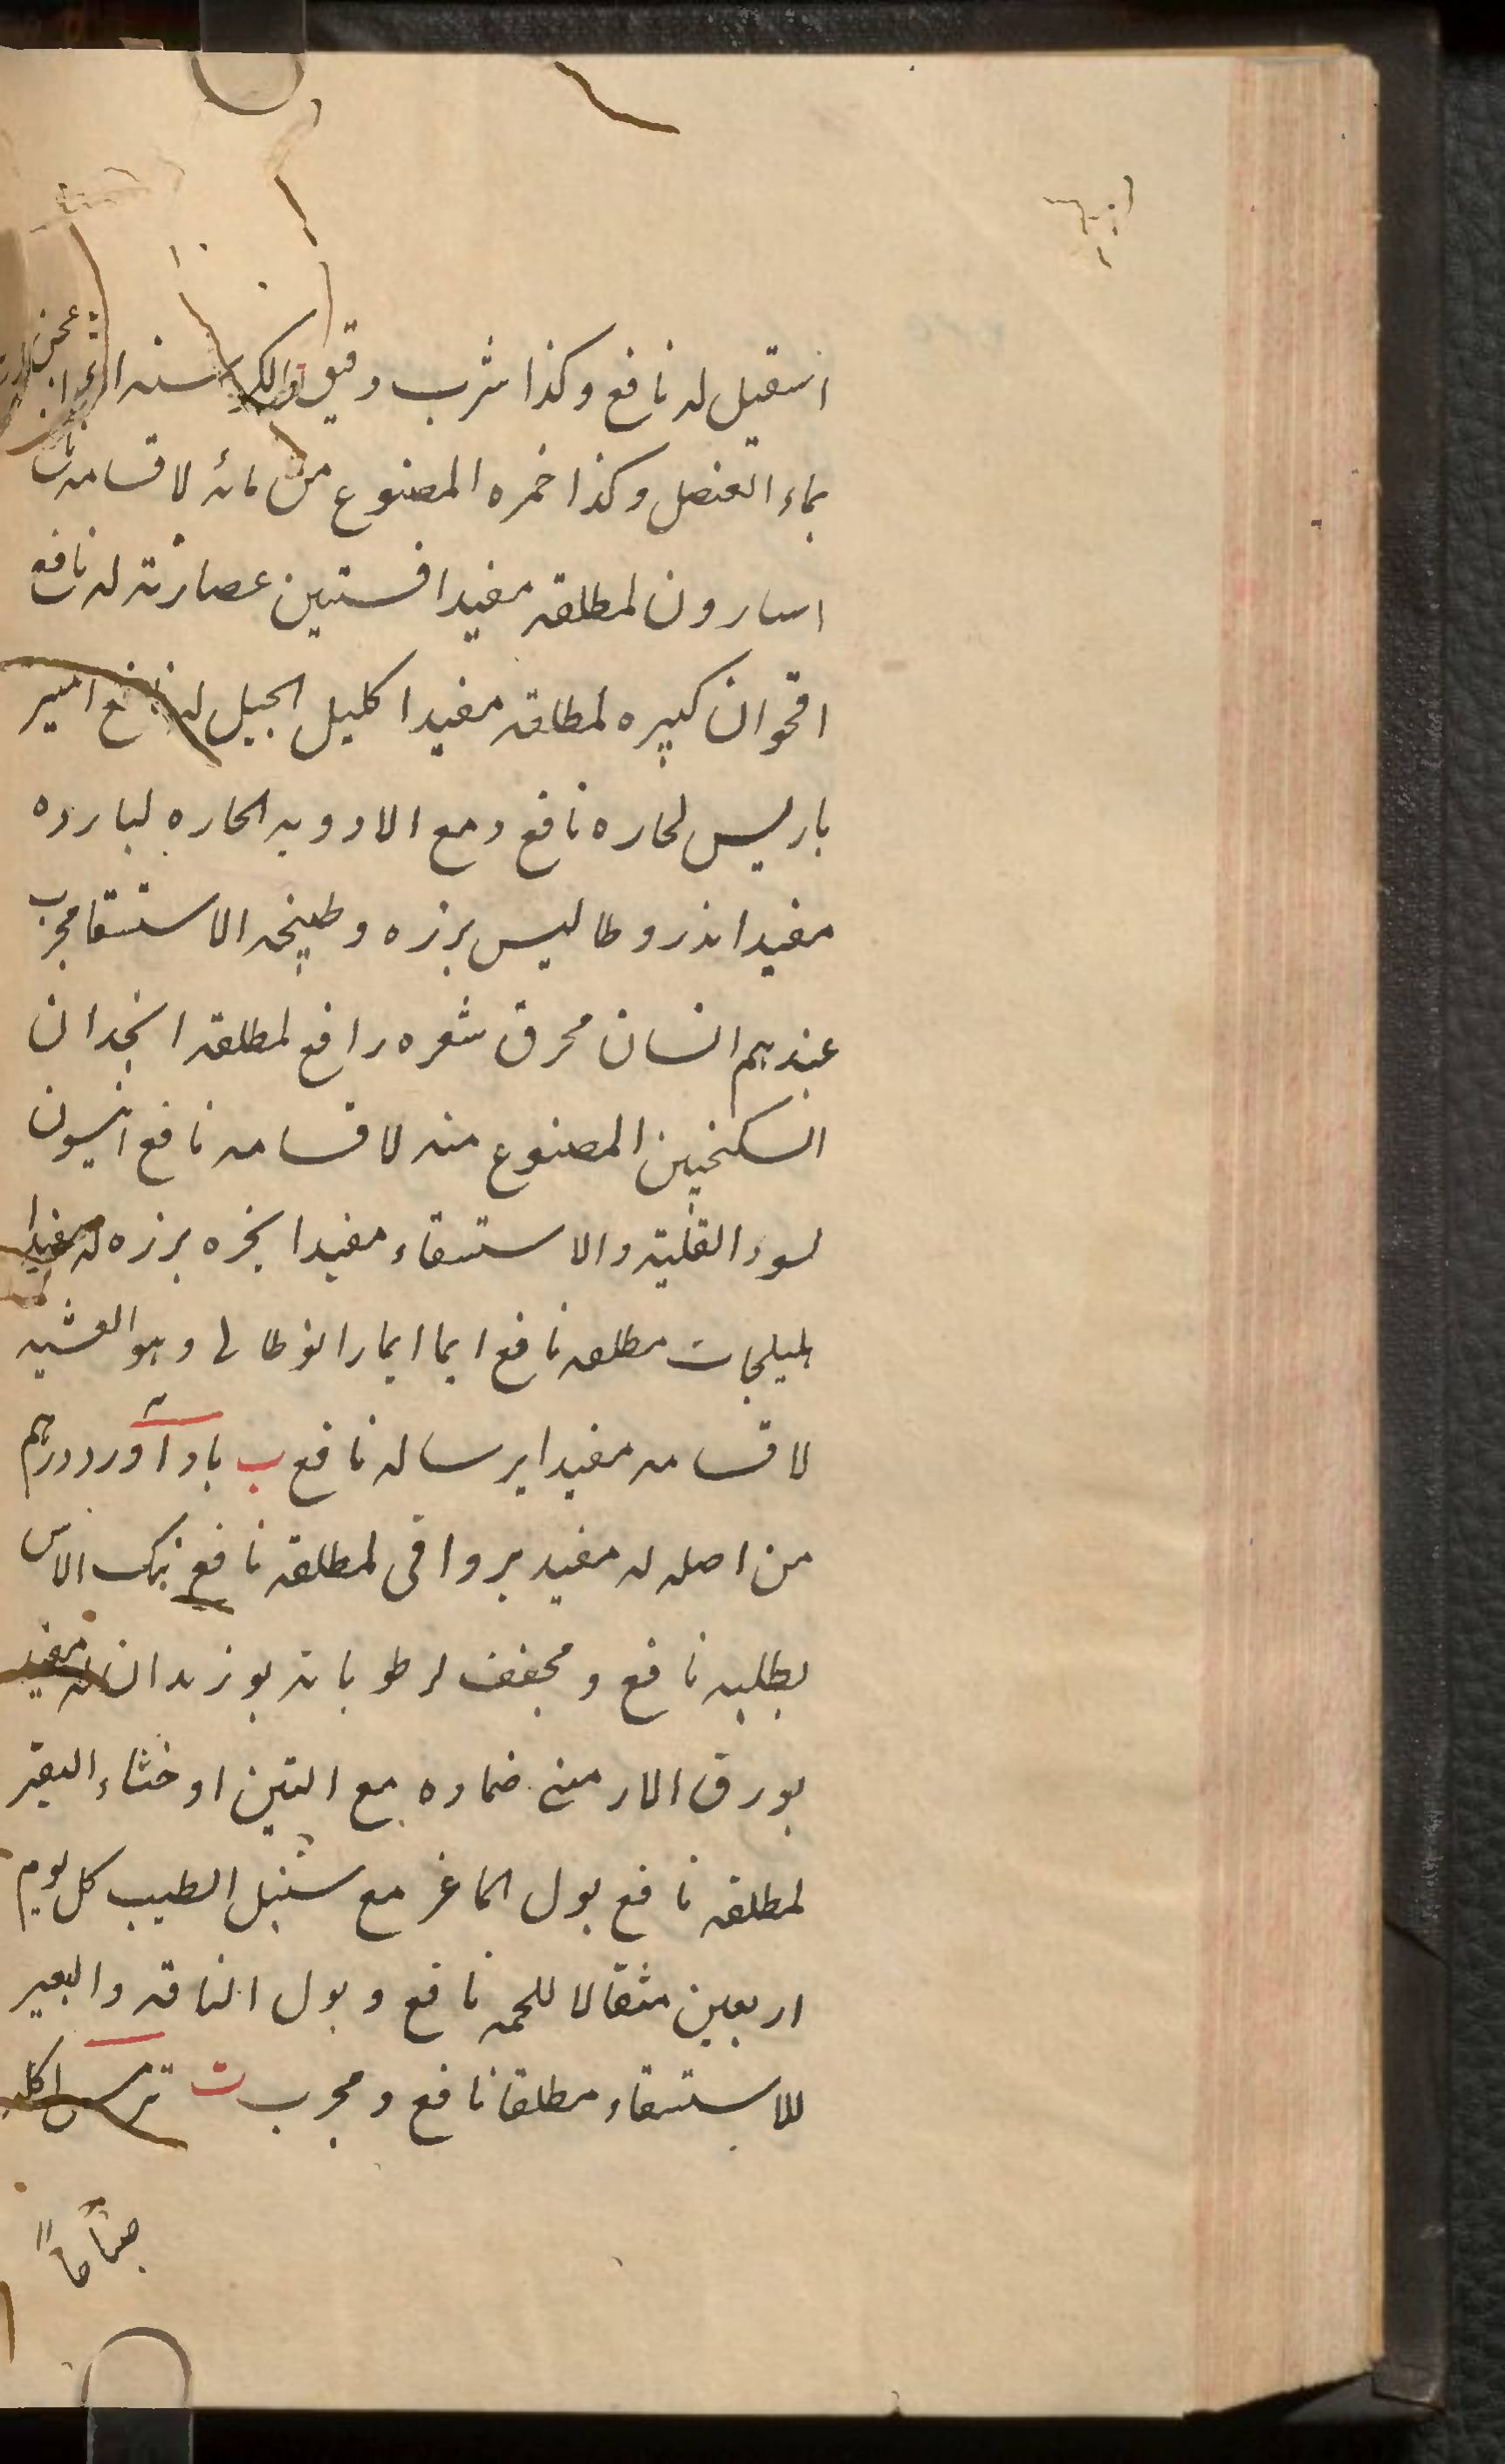 اسقيل له نافع وكذا شرب دقيق الكرسنه
بماء العنصل وكذا خمره المصنوع من مائه لاقسامه نافع
اسارون لمطلقه مفيد افسنتين عصارته له نافع
اقحوان كبيره لمطلقه مفيد اكليل الجبل له نافع امير
باريس لحاره نافع ومع الادويه الحاره لبارده
مفيد اندروطاليس بزره وطبيخه الاستسقا مجرب
عندهم انسان محرق شعره رافع لمطلقه انجدان
السكنجبين المصنوع منه لاقسامه نافع انيسون
لسوء القنيه والاستسقاء مفيد انجره بزره له مفيد ا
هليلجات مطلقه نافع ايما ايمارانوطالى وهو العشبه
لاقسامه مفيد ايرسا له نافع ب باداورد درهم
من اصله له مفيد برواقى لمطلقه نافع بنك الاس
بطلبه نافع ومجفف لرطوباته بوزيدان له مفيد
بورق الارمنى ضماده مع التين او خثاء البقر
لمطلقه نافع بول الماعز مع سنبل الطيب كل يوم
اربعين مثقالا للحمى نافع وبول الناقه والبعير
للاستسقاء مطلقا نافع ومجرب ت ترمس اكله